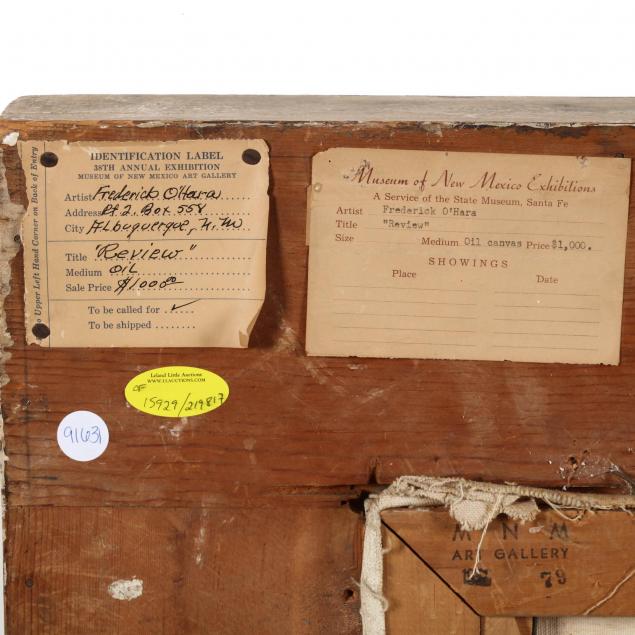 IDENTIFICATION LABEL
38TH ANNUAL EXHIBITION
MUSEUM OF NEW MEXICO ART GALLERY
Artist Frederick O'Hara
Address Rt 2. Box 558
City Albuquerque, N.M
Title "Review"
Medium OIL
Sale Price $1000.00
To be called for ✓
To be shipped
Upper Left Hand Corner on Back of Entry
Museum of New Mexico Exhibitions
A Service of the State Museum, Santa Fe
Artist Frederick O'Hara
Title "Review"
Size Medium Oil canvas Price $1,000.
SHOWINGS
Place Date
Leland Little Auctions
WWW.LLAUCTIONS.COM
15929/219817
91631
M N M
ART GALLERY
79